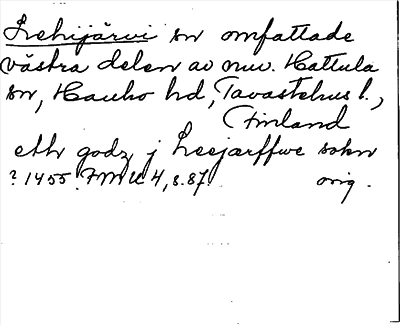 Lehijärvi sn omfattade
västra delen av nuv. Hattula
sn, Hauho hd, Tavastehus l.,
Finland
eth godz j Leejærffwe sokn
? 1455 FMU 4, s. 87 orig.